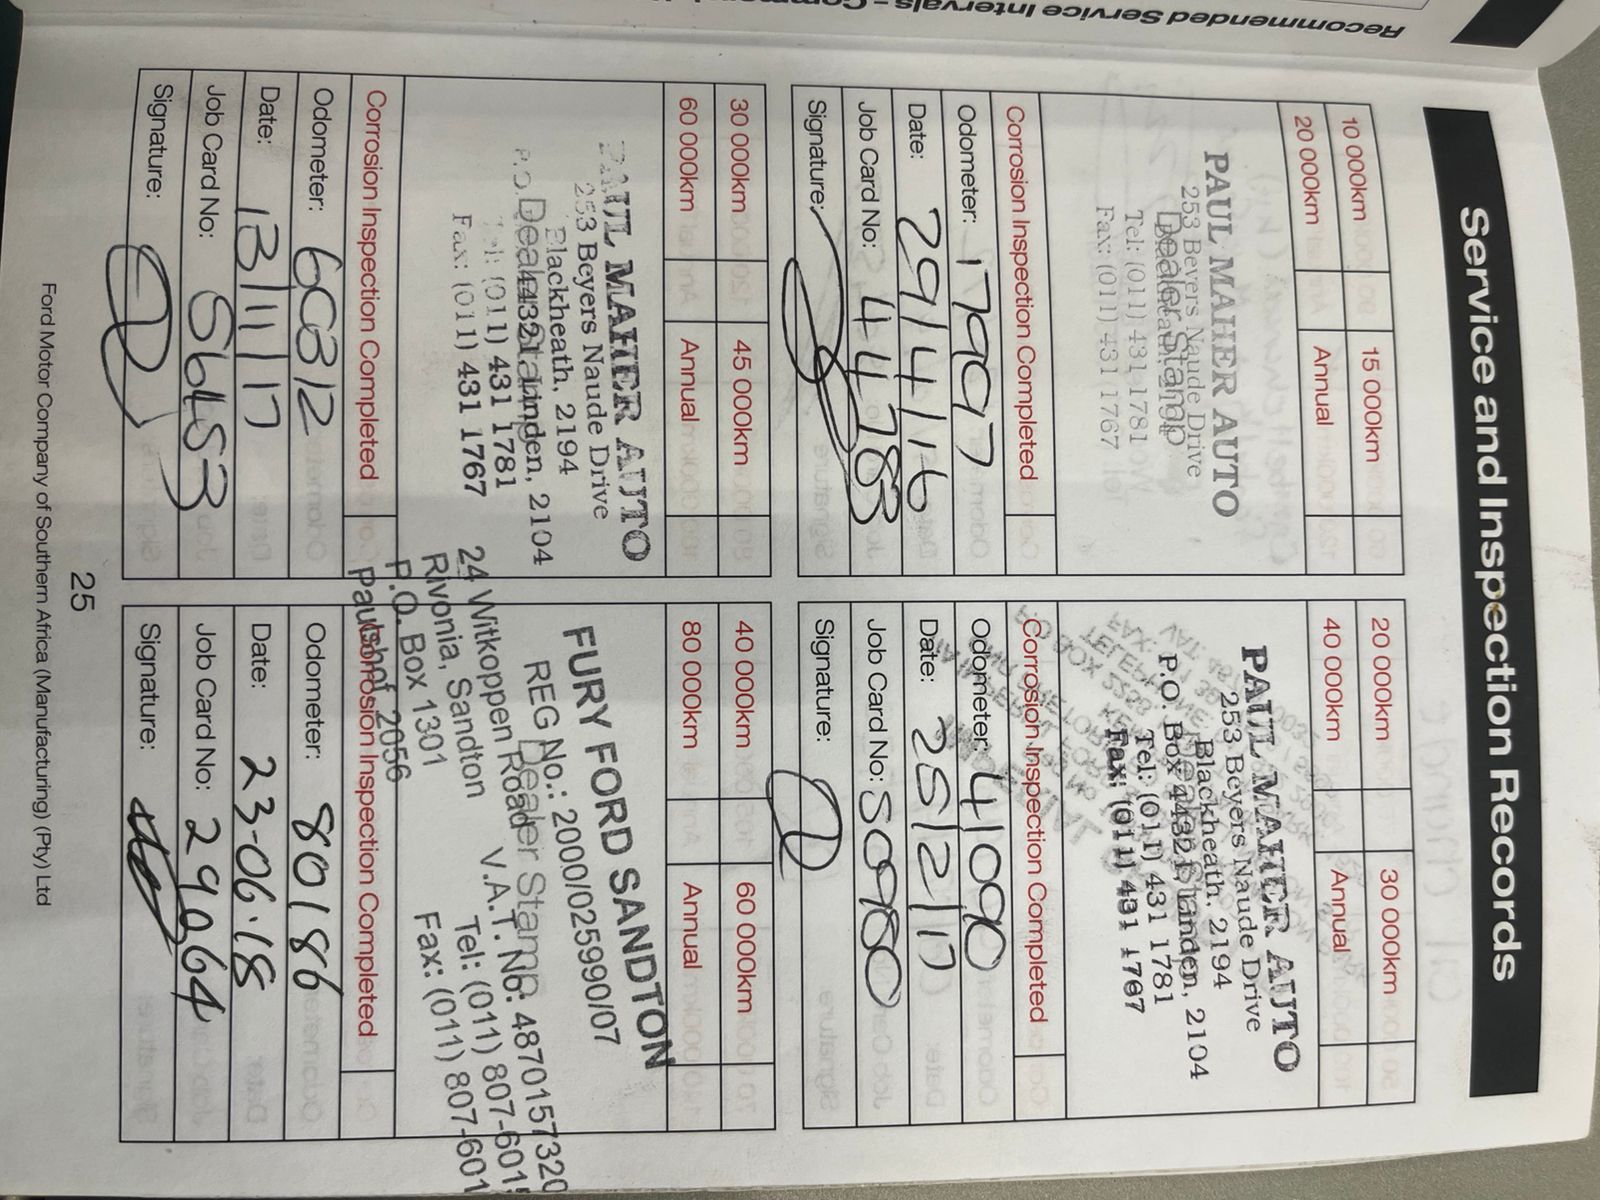 Recommended Service Intervals -
Service and Inspection Records
10 000km 15 000km
20 000km Annual
PAUL MAHER AUTO
253 Beyers Naude Drive
Dealer Stamp
Tel: (011) 431 1781
Fax: (011) 431 1767
Corrosion Inspection Completed
Odometer: 17997
Date: 29/4/16
Job Card No: 44783
Signature:
20 000km 30 000km
40 000km Annual
PAUL MAHER AUTO
253 Beyers Naude Drive
Blackheath, 2194
P.O. Box 4432 Cramerview, 2104
Tel: (011) 431 1781
Fax: (011) 431 1767
Corrosion Inspection Completed
Odometer: 41090
Date: 25/2/17
Job Card No: 50980
Signature:
30 000km 45 000km
60 000km Annual
PAUL MAHER AUTO
253 Beyers Naude Drive
Blackheath, 2194
2104
Tel: (011) 431 1781
Fax: (011) 431 1767
Corrosion Inspection Completed
Odometer: 60812
Date: 13/11/17
Job Card No: 56453
Signature:
40 000km 60 000km
80 000km Annual
FURY FORD SANDTON
REG No.: 2000/025990/07
Dealer Stamp
V.A.T. No: 4870157320
24 Witkoppen Road Tel: (011) 807-601
Rivonia, Sandton Fax: (011) 807-601
P.O. Box 1301
Paulshof 2056
Corrosion Inspection Completed
Odometer: 80186
Date: 23-06-18
Job Card No: 29064
Signature:
25
Ford Motor Company of Southern Africa (Manufacturing) (Pty) Ltd